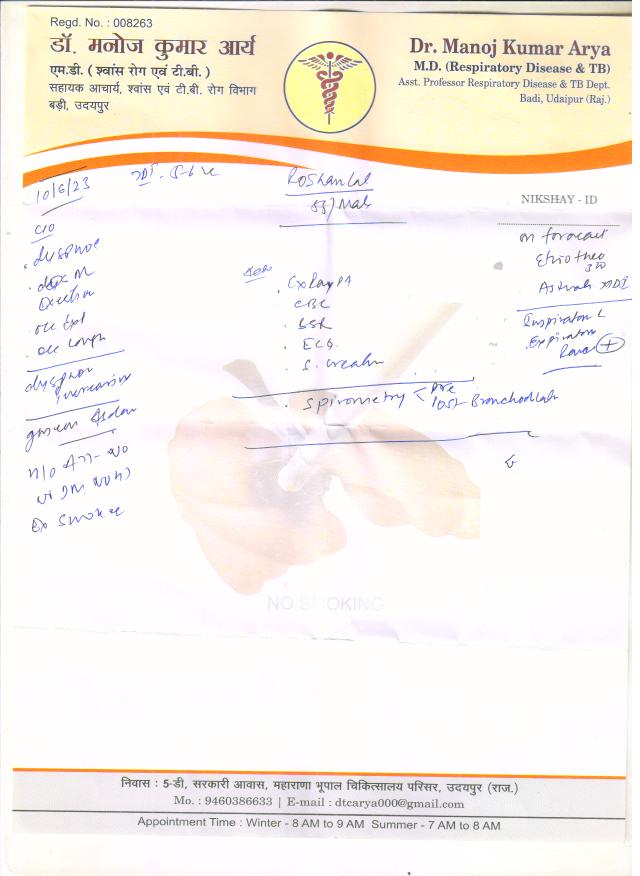 Regd. No. : 008263
डॉ. मनोज कुमार आर्य
एम.डी. ( श्वांस रोग एवं टी.बी. )
सहायक आचार्य, श्वांस एवं टी.बी. रोग विभाग
बड़ी, उदयपुर
Dr. Manoj Kumar Arya
M.D. (Respiratory Disease & TB)
Asst. Professor Respiratory Disease & TB Dept.
Badi, Udaipur (Raj.)
10/6/23
Roshan Lal
53/Male
NIKSHAY - ID
C/O
. dyspnoe
Exertion
. occ Expt
. occ Cough
dyspnoe
increasing
H/O ATT- NO
Ex Smoker
. Cx Ray PA
. CBC
. ESR
. ECG.
. S. Creatin
. Spirometry < Pre
Post Bronchodilat
on foracort
Etriotheo
Asthal MDI
Inspiratory
. Expiratory
(+)
NO SMOKING
निवास : 5-डी, सरकारी आवास, महाराणा भूपाल चिकित्सालय परिसर, उदयपुर (राज.)
Mo. : 9460386633 | E-mail : dtcarya000@gmail.com
Appointment Time : Winter - 8 AM to 9 AM Summer - 7 AM to 8 AM